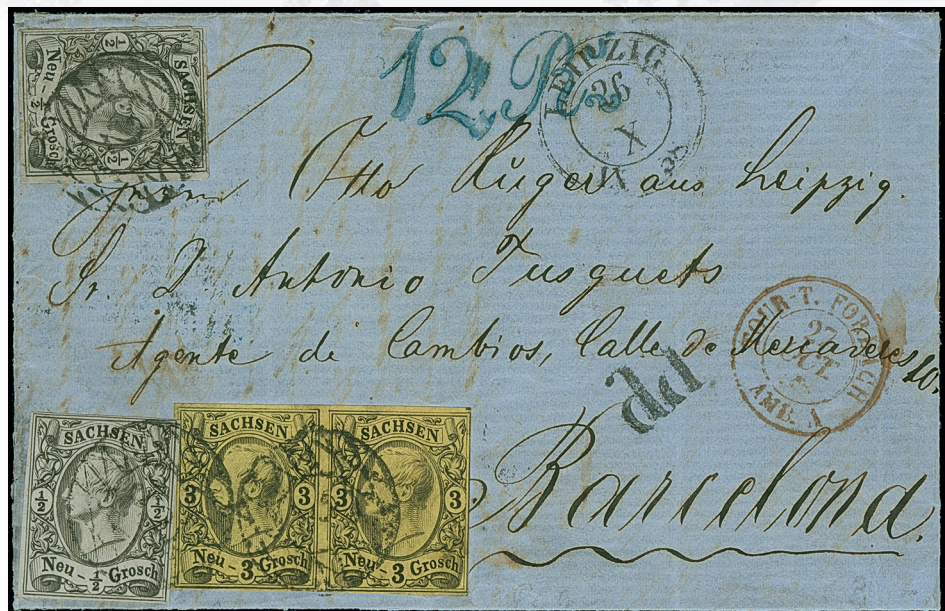 ½ SACHSEN ½
Neu - ½ Grosch
12 P
LEIPZIG
26
X
XI
Otto Kuger aus Leipzig.
Sr. D Antonio Tusquets
Agente de Cambios, Calle de Mercaders 10.
TOUR-T. FORBACH
27
AMB. A
PP
Barcelona.
SACHSEN
½ ½
Neu - ½ Grosch
SACHSEN
3 3
Neu - 3 Grosch
SACHSEN
3 3
Neu - 3 Grosch